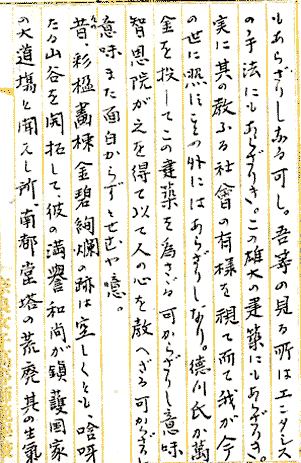 もあらざりしなる可し。吾等の見る所はエンタシス
の手法にもあらざりき。この雄大の建築にもあらざりき。
実に其の教ふる社會の有様を視て而て我が今
の世に照にこの外にはあらざりしなり。德川氏が萬
金を投じてこの建築を為さゞる可からざりし意味
智恩院が之を得て以て人の心を教へざる可からざりし
意味また面白からずとせむや噫。
昔、彩楹畵棟金碧絢爛の跡は空しくとも、啥呀
たる山谷を開拓して、彼の満譽和尚が鎮護国家
の大道場と聞えし所、南都堂塔の荒廃其の生氣